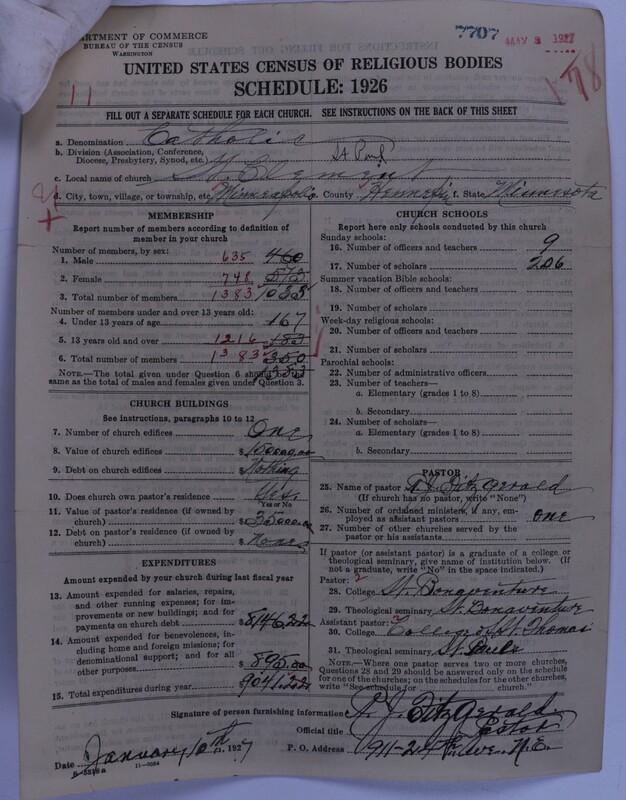 DEPARTMENT OF COMMERCE
BUREAU OF THE CENSUS
WASHINGTON
7707
MAY 3 1927
UNITED STATES CENSUS OF RELIGIOUS BODIES
SCHEDULE: 1926
11
1-78
FILL OUT A SEPARATE SCHEDULE FOR EACH CHURCH. SEE INSTRUCTIONS ON THE BACK OF THIS SHEET
a. Denomination Catholic
b. Division (Association, Conference, Diocese, Presbytery, Synod, etc.) St Paul
c. Local name of church St. Clement
d. City, town, village, or township, etc. Minneapolis e. County Hennepin f. State Minnesota
MEMBERSHIP
Report number of members according to definition of
member in your church
Number of members, by sex:
1. Male 635 460
2. Female 748 573
3. Total number of members 1383
Number of members under and over 13 years old:
4. Under 13 years of age 167
5. 13 years old and over 1216 183
6. Total number of members 1383 350
NOTE.—The total given under Question 6 should be
same as the total of males and females given under Question 3.
CHURCH BUILDINGS
See instructions, paragraphs 10 to 12
7. Number of church edifices One
8. Value of church edifices $
9. Debt on church edifices $ Nothing
10. Does church own pastor's residence Yes.
Yes or No
11. Value of pastor's residence (if owned by
church) $
12. Debt on pastor's residence (if owned by
church) $ None
EXPENDITURES
Amount expended by your church during last fiscal year
13. Amount expended for salaries, repairs,
and other running expenses; for im-
provements or new buildings; and for
payments on church debt $ 8146.22
14. Amount expended for benevolences, in-
cluding home and foreign missions; for
denominational support; and for all
other purposes $ 895.00
15. Total expenditures during year 9041.22
CHURCH SCHOOLS
Report here only schools conducted by this church
Sunday schools:
16. Number of officers and teachers 9
17. Number of scholars 206
Summer vacation Bible schools:
18. Number of officers and teachers
19. Number of scholars
Week-day religious schools:
20. Number of officers and teachers
21. Number of scholars
Parochial schools:
22. Number of administrative officers
23. Number of teachers—
a. Elementary (grades 1 to 8)
b. Secondary
24. Number of scholars—
a. Elementary (grades 1 to 8)
b. Secondary
PASTOR
25. Name of pastor T. J. FitzGerald
(If church has no pastor, write "None")
26. Number of ordained ministers, if any, em-
ployed as assistant pastors one
27. Number of other churches served by the
pastor or his assistants
If pastor (or assistant pastor) is a graduate of a college or
theological seminary, give name of institution below. (If
not a graduate, write "No" in the space indicated.)
Pastor: 2
28. College St. Bonaventure
29. Theological seminary St. Bonaventure
Assistant pastor:
30. College College of St. Thomas
31. Theological seminary St. Pauls
NOTE.—Where one pastor serves two or more churches,
Questions 28 and 29 should be answered only on the schedule
for one of the churches; on the schedules for the other churches,
write "See schedule for church."
Signature of person furnishing information T. J. FitzGerald
Official title Pastor
Date January 10th, 1927 P. O. Address 911-24th Ave. N.E.
8-5318a 11-9084